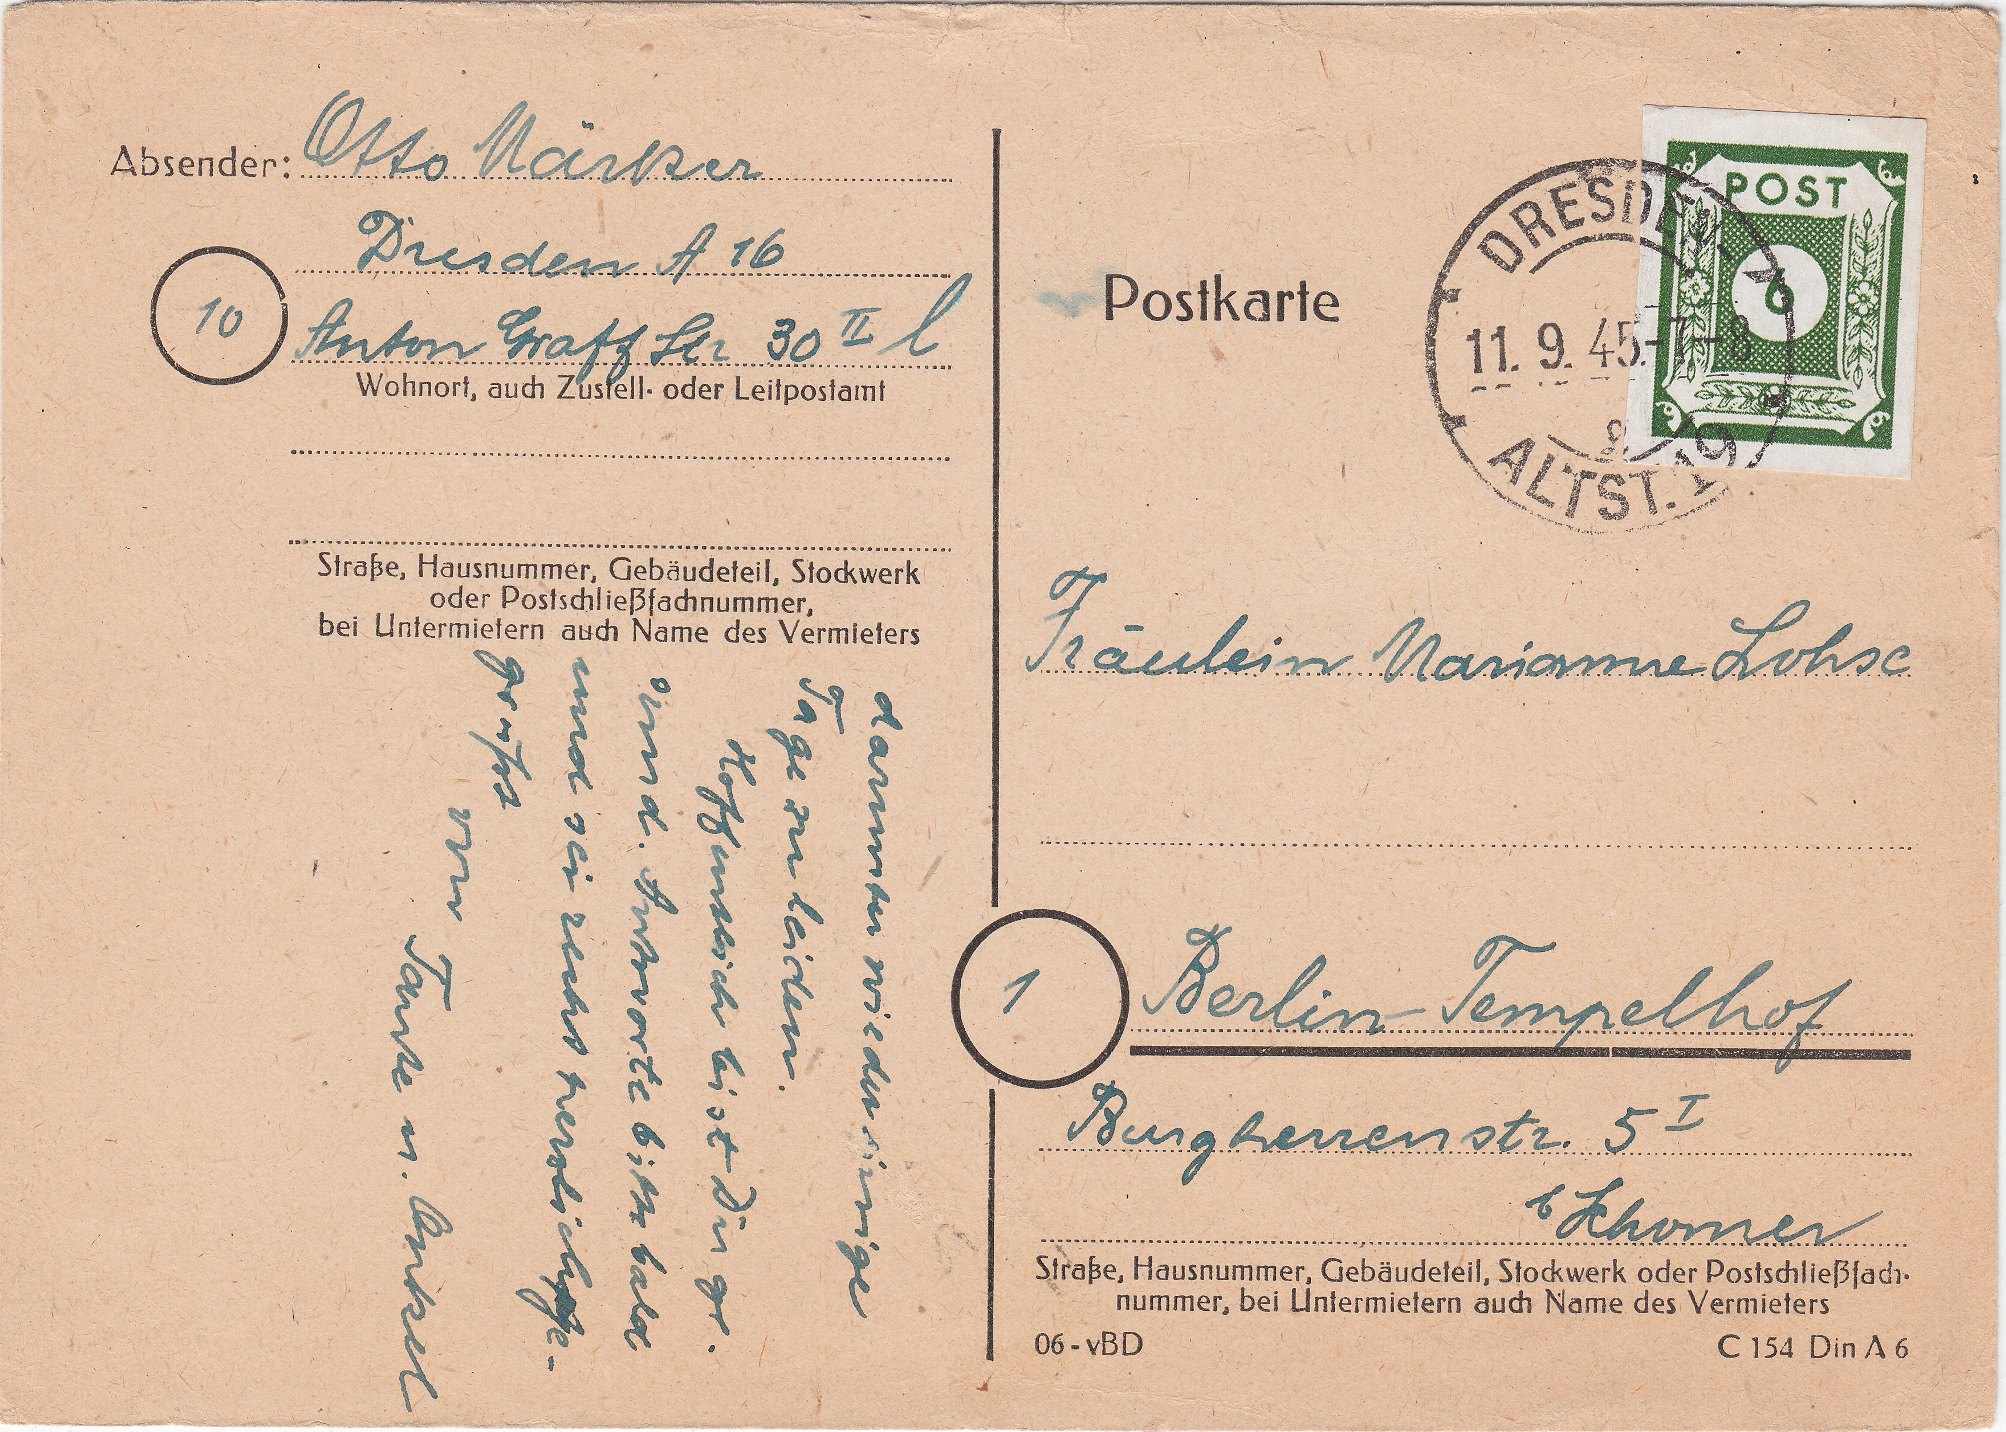 Absender: Otto Märker
Dresden A 16
10
Anton Graff Str 30 II l
Wohnort, auch Zustell- oder Leitpostamt
Straße, Hausnummer, Gebäudeteil, Stockwerk
oder Postschließfachnummer,
bei Untermietern auch Name des Vermieters
darunter wieder einige
Tage zu leiden.
Hoffentlich bist Du ge-
sund. Antworte bitte bald
und sei recht herzlichst ge-
grüßt
von
Tante u. Onkel
Postkarte
POST
6
DRESDEN-
11. 9. 45.-7-8
ALTST. 19
Fräulein Marianne Lohse
1
Berlin-Tempelhof
Burgherrenstr. 5 I
b
Straße, Hausnummer, Gebäudeteil, Stockwerk oder Postschließfach-
nummer, bei Untermietern auch Name des Vermieters
06-vBD
C 154 Din A 6